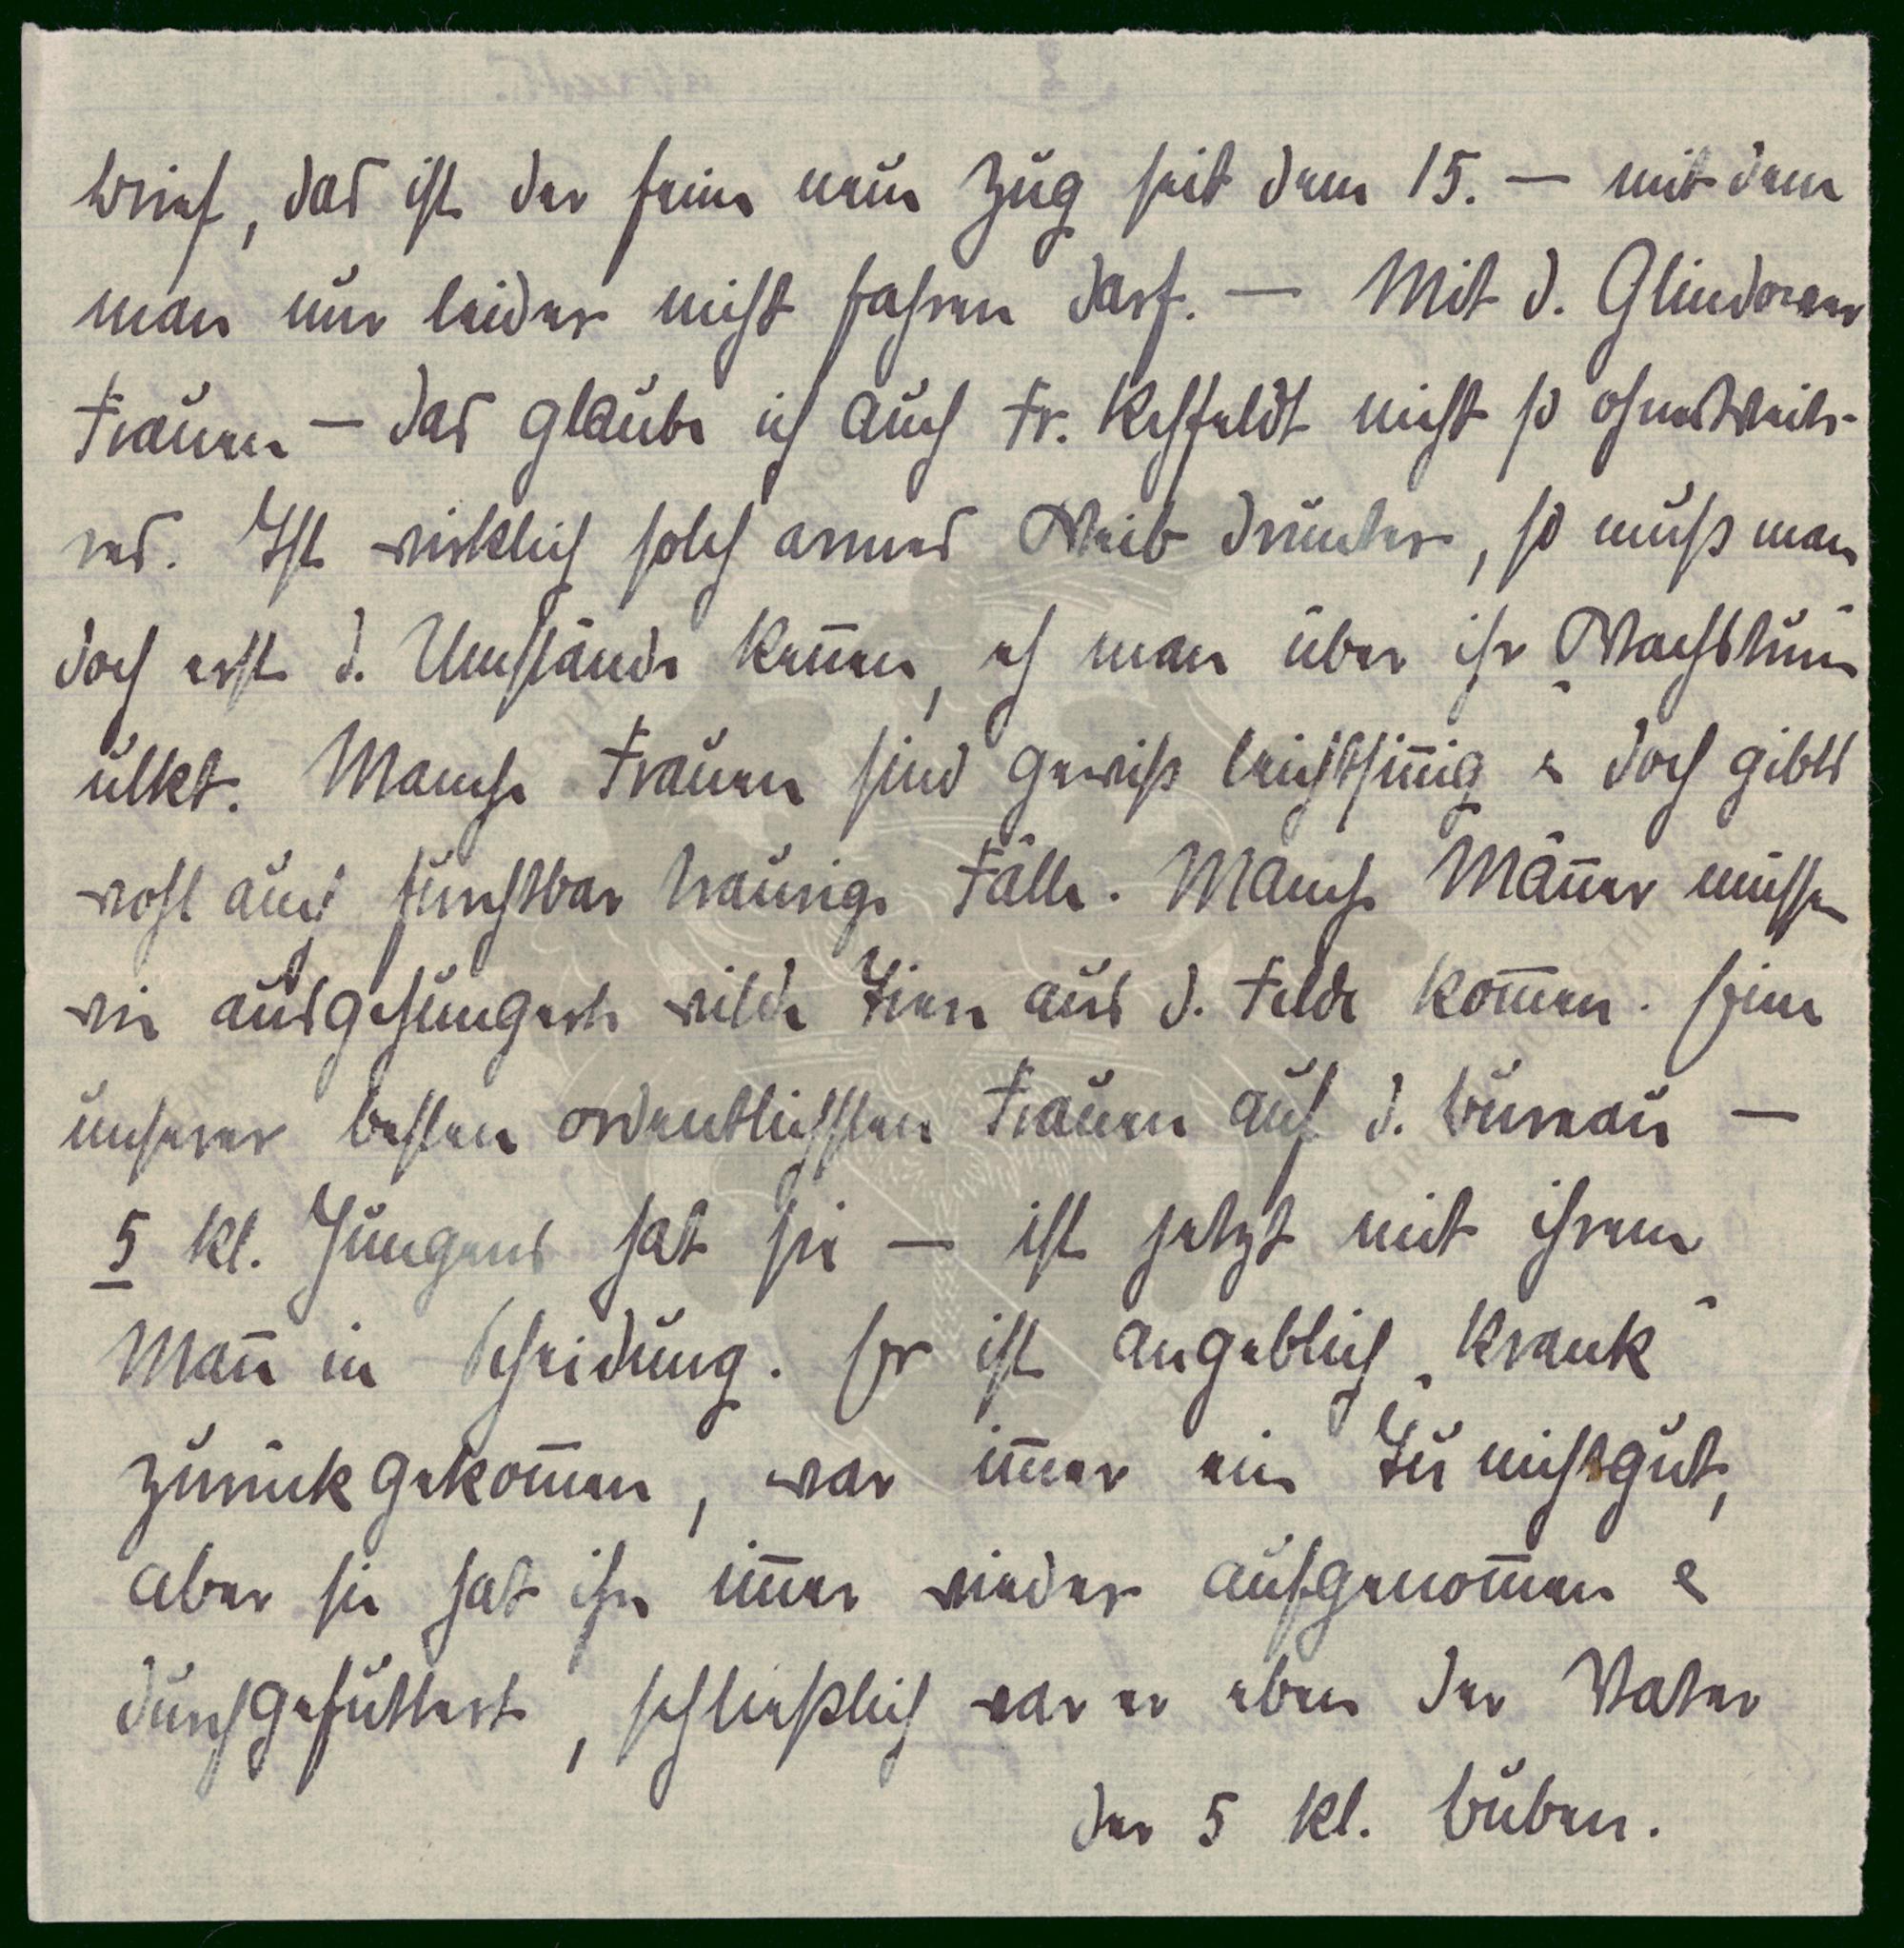 brief, das ist der feine neue Zug seit dem 15. — mit dem
man nur leider nicht fahren darf. — Mit d. Glindower
Frauen — das glaube ich auch Fr. Rehfeldt nicht so ohne Weite-
res. Ist wirklich solch armes Weib drunter, so muß man
doch erst d. Umstände kennen, eh man über ihr „Wachstum“
ulkt. Manche Frauen sind gewiß leichtsinnig & doch gibts
wohl auch furchtbar traurige Fälle. Manche Männer müssen
wie ausgehungerte wilde Tiere aus d. Felde kommen. Eine
unserer besten ordentlichsten Frauen auf d. Bureau —
5 kl. Jungens hat sie — ist jetzt mit ihrem
Mann in Scheidung. Er ist angeblich „krank“
zurückgekommen, war immer ein Tunichtgut,
aber sie hat ihn immer wieder aufgenommen &
durchgefüttert, schließlich war er eben der Vater
der 5 kl. Buben.